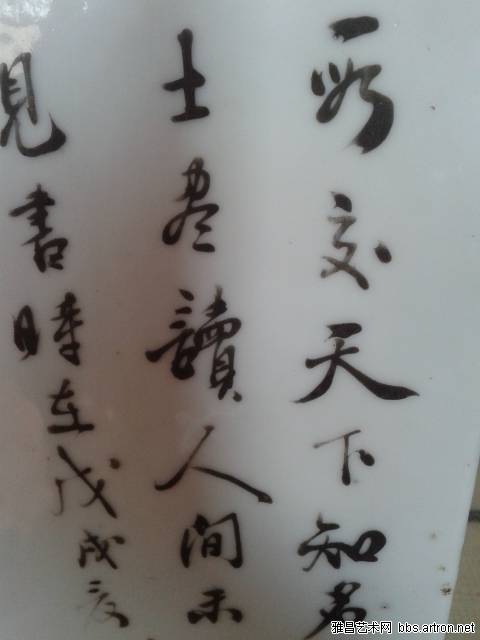 所交天下知名
士盡讀人間未
見書時在戊戌夏
雅昌艺术网 bbs.artron.net